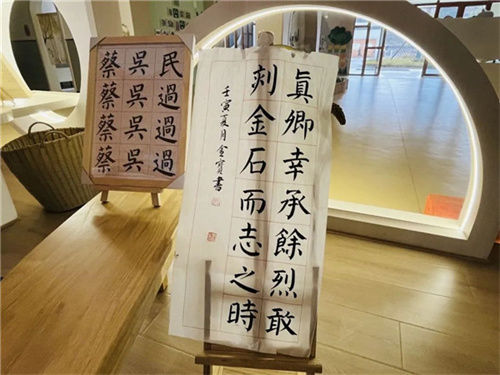 眞卿幸承餘烈敢
刻金石而志之時
壬寅夏月書
民過過過
吳吳吳吳
蔡蔡蔡蔡